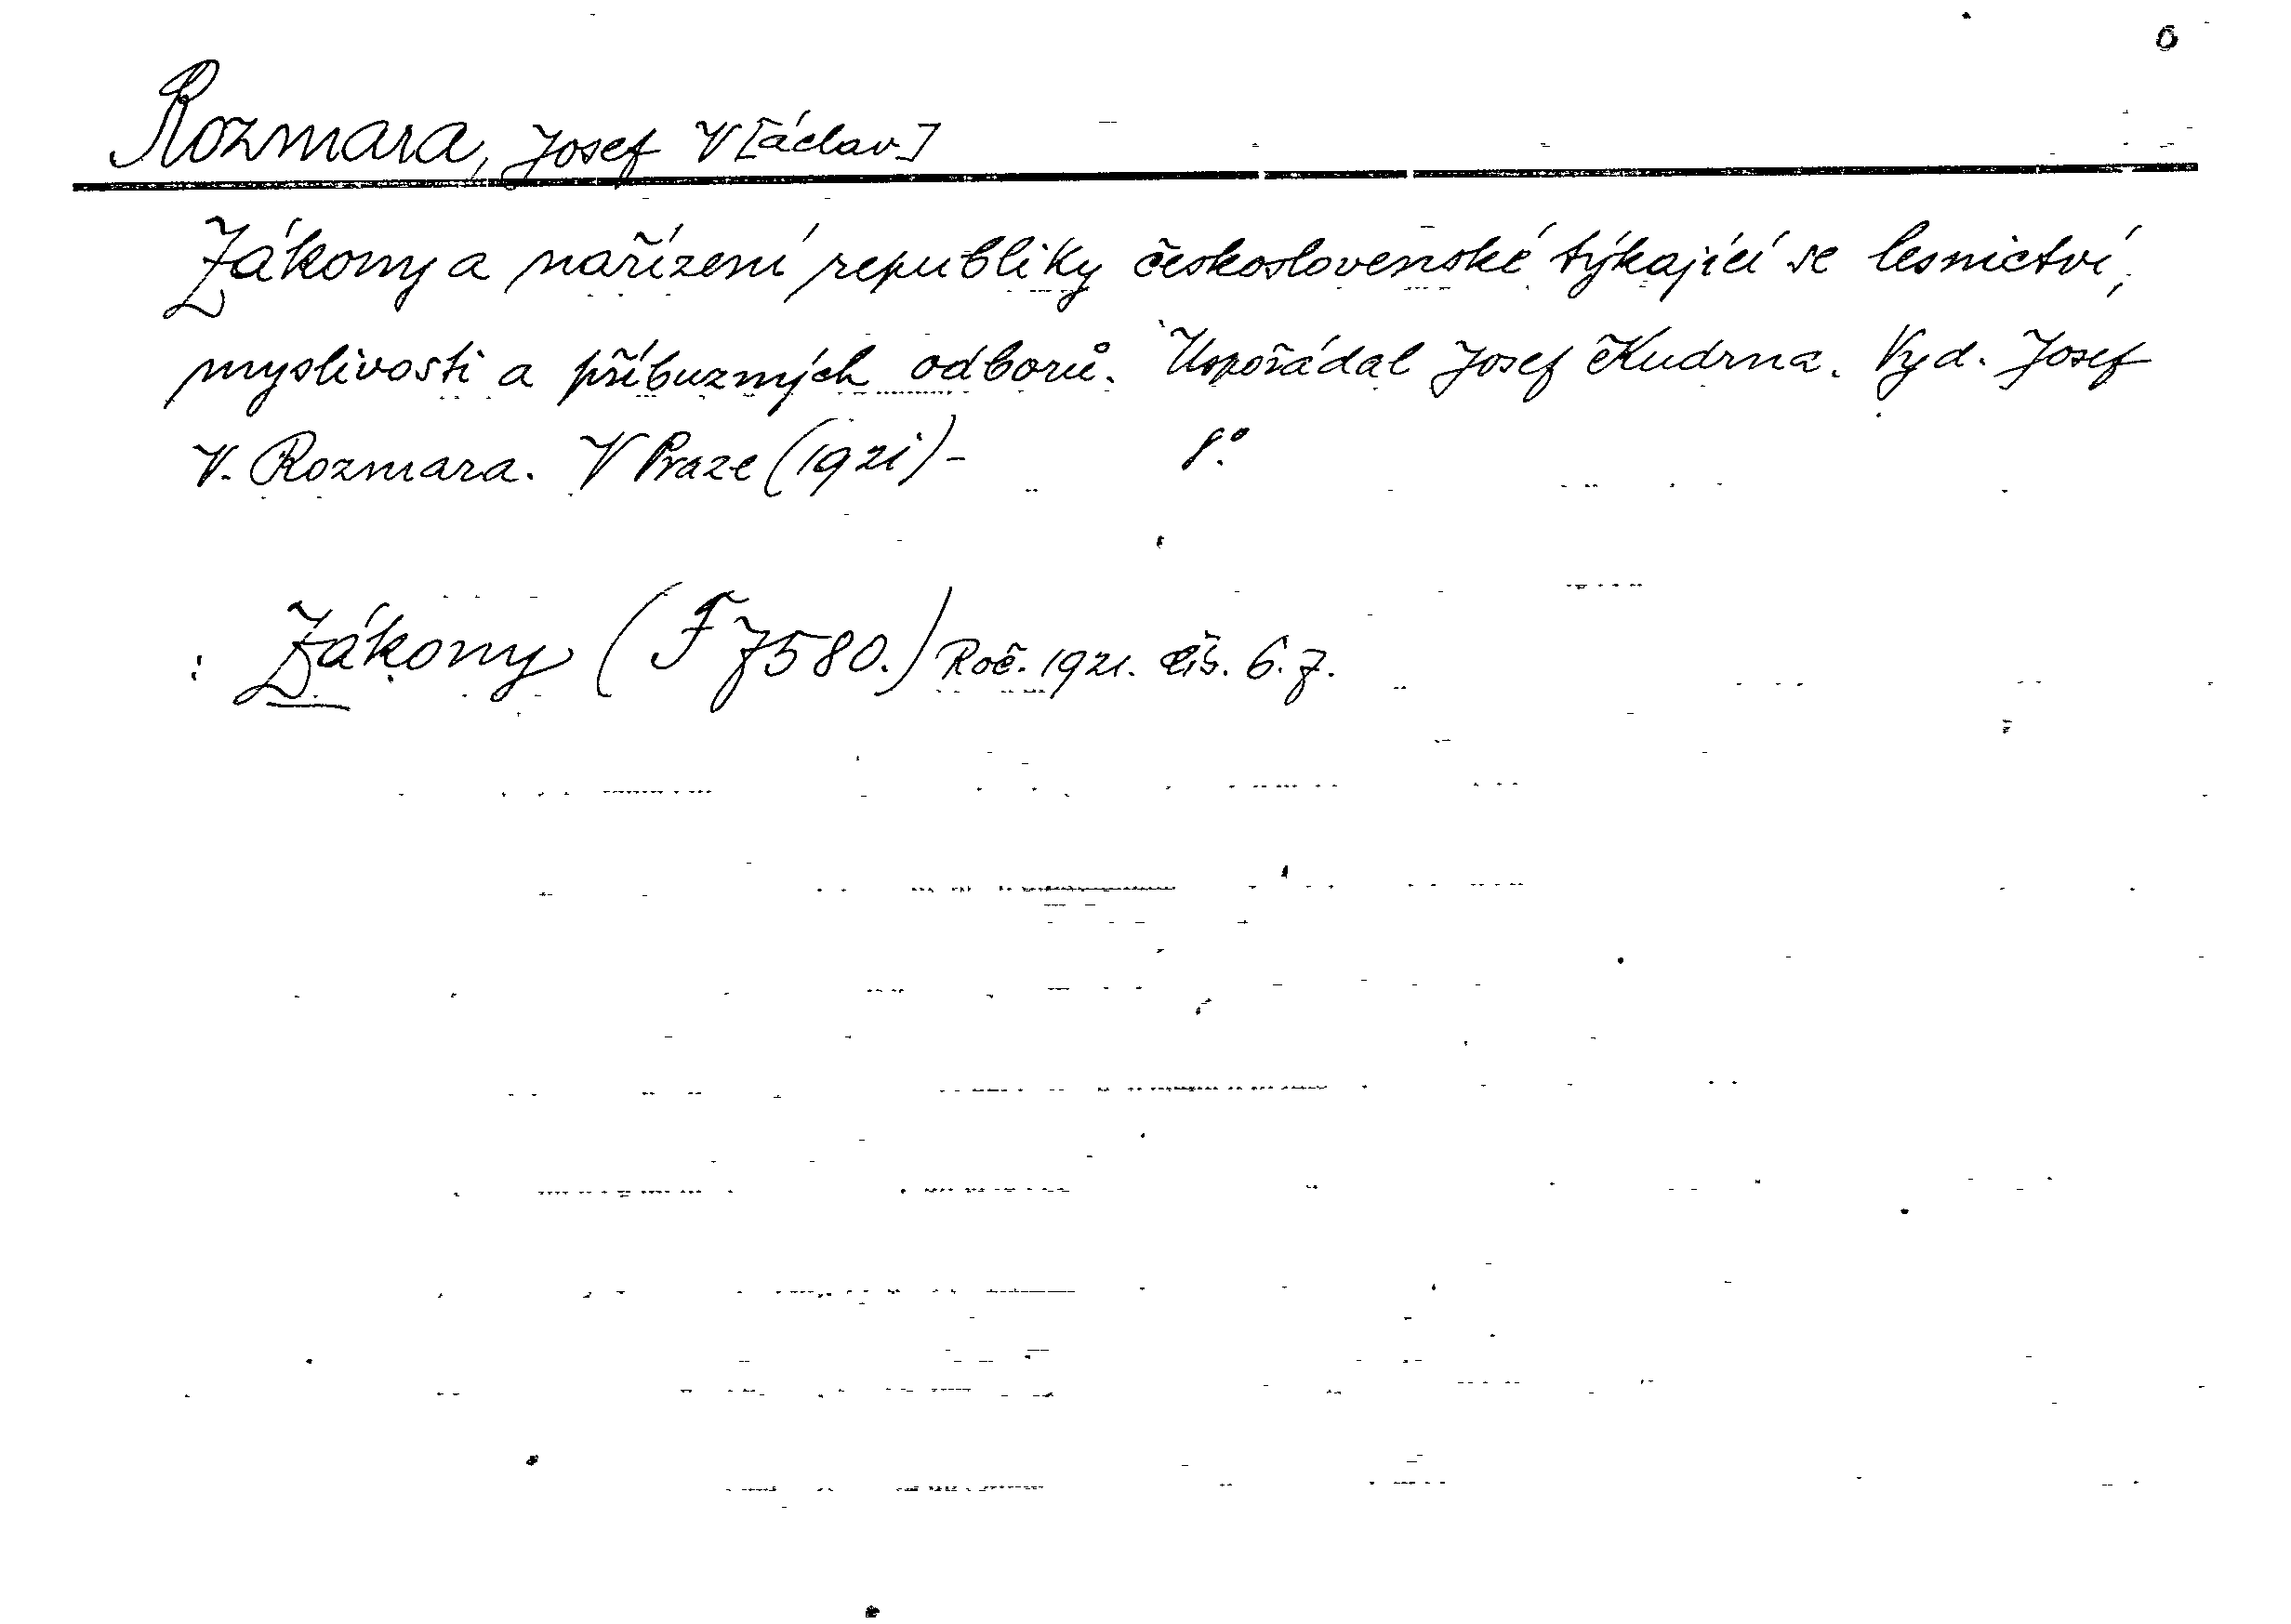 Rozmara, Josef V[áclav]
Zákony a nařízení republiky československé týkající se lesnictví,
myslivosti a příbuzných odborů. Uspořádal Josef Kudrna. Vyd. Josef
V. Rozmara. V Praze (1921) - 8º.
: Zákony (F 7580.) Roč. 1921. čís. 6. 7.